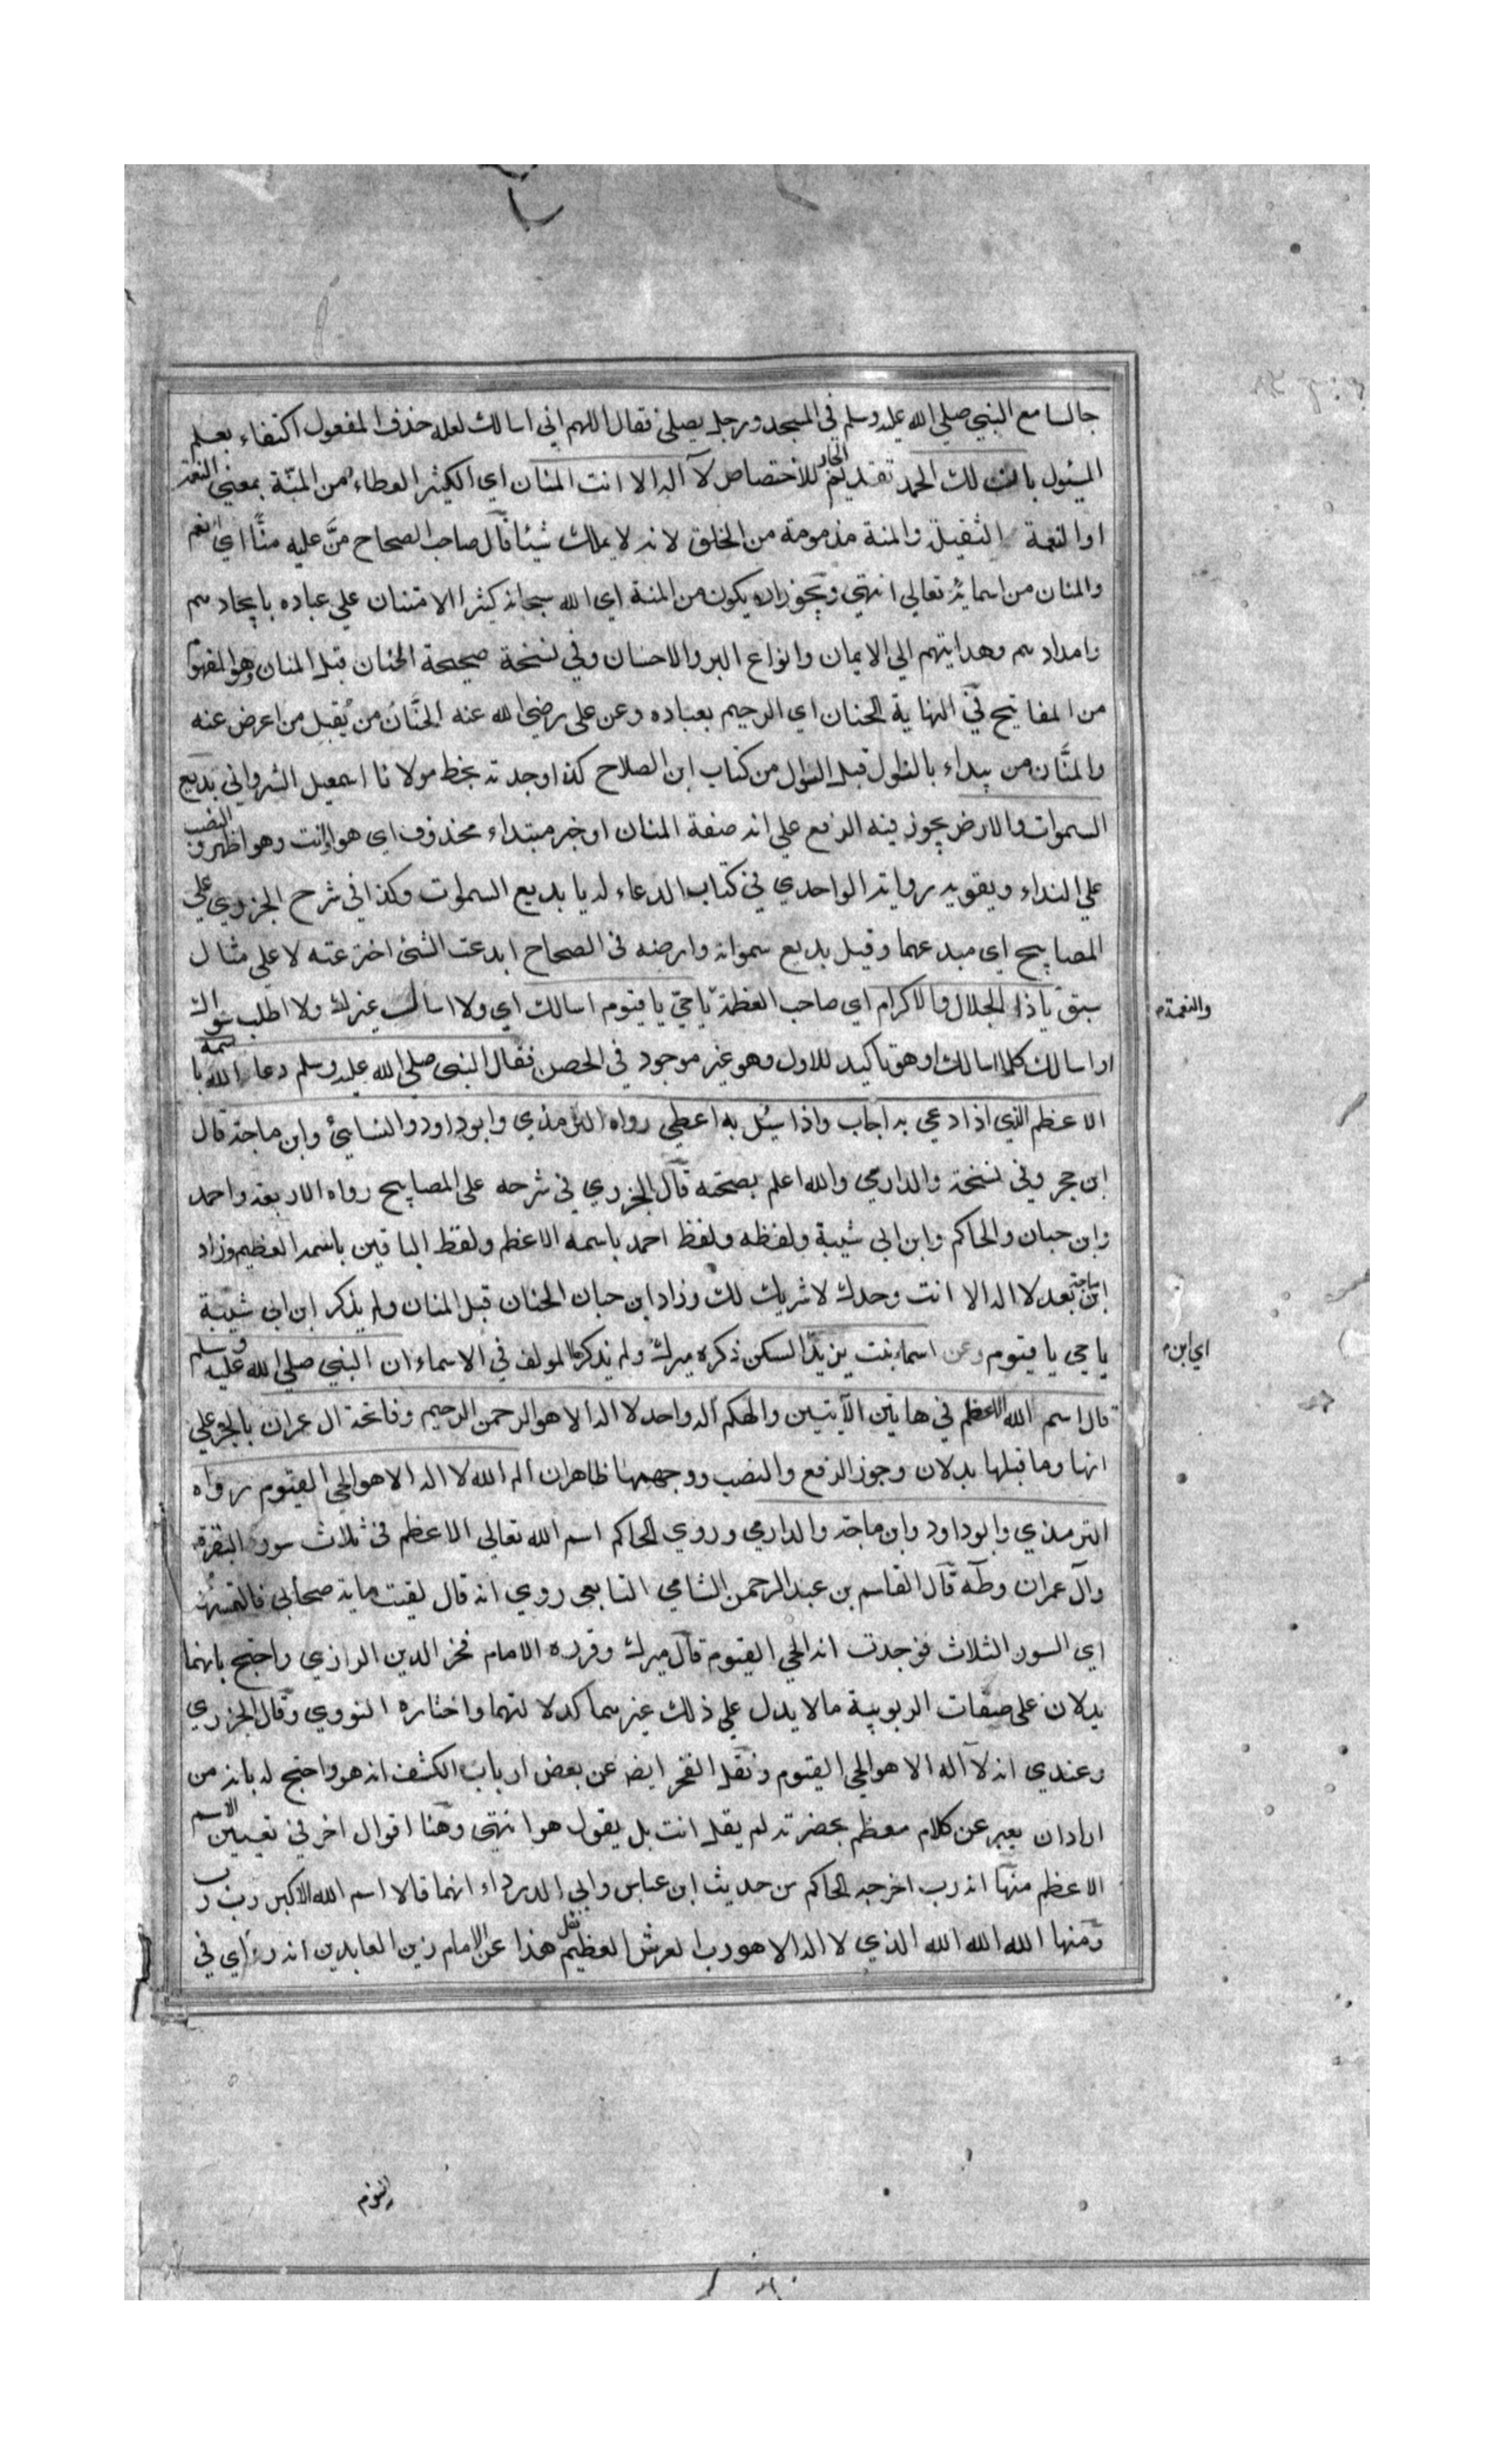 جالسا مع النبي صلي الله عليه وسلم في المسجد ورجل يصلي فقال اللهم اني اسالك لعله حذف المفعول اكتفاء بعلم
المسئول بان لك الحمد تقديم الجار للاختصاص لا اله الا انت المنان اي الكثير العطاء من المنّة بمعني النعمة
او النعمة الثقيلة والمنة مذمومة من الخلق لانه لا يملك شيئا قال صاحب الصحاح منَّ عليه منًّا اي انعم
والمنان من اسمائه تعالي انتهي ويجوز ان يكون من المنة اي الله سبحانه كثير الامتنان علي عباده بايجادهم
وامدادهم وهدايتهم الي الايمان وانواع البر والاحسان وفي نسخة صحيحة الحنان قبل المنان وهو المفهوم
من المفاتيح في النهاية الحنان اي الرحيم بعباده وعن علي رضي الله عنه الحنَّان من يُقبِل من اعرض عنه
والمنَّان من يبداء بالنوال قبل السؤال من كتاب ابن الصلاح كذا وجدته بخط مولانا اسمعيل الشرواني بديع
السموات والارض يجوز فيه الرفع علي انه صفة المنان او خبر مبتداء محذوف اي هو او انت وهو اظهر و النصب
علي النداء ويقويه رواية الواحدي في كتاب الدعاء له يا بديع السموات وكذا في شرح الجزري علي
المصابيح اي مبدعهما وقيل بديع سمواته وارضه في الصحاح ابدعت الشئ اخترعته لا علي مثال
سبق يا ذا الجلال والاكرام اي صاحب العظمة يا حيّ يا قيوم اسالك اي ولا اسال غيرك ولا اطلب سواك
والنعمة
او اسالك كلما اسالك او هو تاكيد للاول وهو غير موجود في الحصن فقال النبي صلي الله عليه وسلم دعا الله باسمه
الاعظم الذي اذا دعي به اجاب واذا سئل به اعطي رواه الترمذي وابو داود والنسائي وابن ماجة قال
ابن حجر وفي نسخة والدارمي والله اعلم بصحته قال الجزري في شرحه علي المصابيح رواه الاربعة واحمد
وابن حبان والحاكم وابن ابي شيبة ولفظه ولفظ احمد باسمه الاعظم ولفظ الباقين باسمه العظيم وزاد
ابن ماجة بعد لا اله الا انت وحدك لا شريك لك وزاد ابن حبان الحنان قبل المنان ولم يذكر ابن ابي شيبة
يا حي يا قيوم وعن اسماء بنت يزيد السكن ذكره ميرك ولم يذكره المولف في الاسماء ان النبي صلي الله عليه وسلم
اي ابن
قال اسم الله الاعظم في هاتين الآيتين والهكم اله واحد لا اله الا هو الرحمن الرحيم وفاتحة ال عمران بالجر علي
انها وما قبلها بدلان وجوز الرفع والنصب ووجههما ظاهران الم الله لا اله الا هو الحي القيوم رواه
الترمذي وابو داود وابن ماجة والدارمي وروي الحاكم اسم الله تعالي الاعظم في ثلاث سور البقرة
وآل عمران وطه قال القاسم بن عبد الرحمن الشامي التابعي روي انه قال لقيت ماية صحابي فالتمستها
اي السور الثلاث فوجدت انه الحي القيوم قال ميرك وقرره الامام فخر الدين الرازي واحتج بانهما
يدلان علي صفات الربوبية ما لا يدل علي ذلك غيرهما كدلالتهما واختاره النووي وقال الجزري
وعندي انه لا اله الا هو الحي القيوم ونقل الفخر ايضا عن بعض ارباب الكشف انه هو واحتج له بانه من
اراد ان يعبر عن كلام معظم بحضرته لم يقل انت بل يقول هو انتهي وهنا اقوال اخر في تعيين الاسم
الاعظم منها انه رب اخرجه الحاكم من حديث ابن عباس وابي الدرداء انهما قالا اسم الله الاكبر رب رب
ومنها الله الله الله الذي لا اله الا هو رب العرش العظيم نقل هذا عن الامام زين العابدين انه رءاي في
النوم